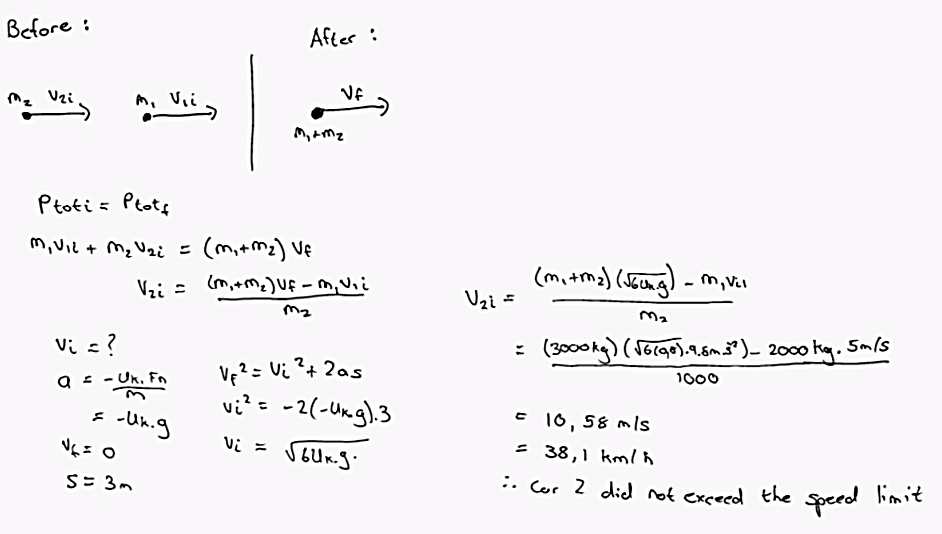 Before :
After :
m₂ V₂i
m₁ V₁i
Vf
m₁+m₂
Ptoti = Ptotf
m₁V₁i + m₂V₂i = (m₁+m₂) Vf
V₂i = (m₁+m₂)Vf - m₁V₁i / m₂
Vi = ?
a = -Uk.Fn / m
= -Uk.g
Vf = 0
S = 3m
Vf² = Vi² + 2as
Vi² = -2(-Uk.g).3
Vi = √6Uk.g.
V₂i = (m₁+m₂)(√6Uk.g) - m₁V₁i / m₂
= (3000kg)(√6(0,8).9.8m.s²) - 2000kg.5m/s / 1000
= 10,58 m/s
= 38,1 km/h
∴ Car 2 did not exceed the speed limit